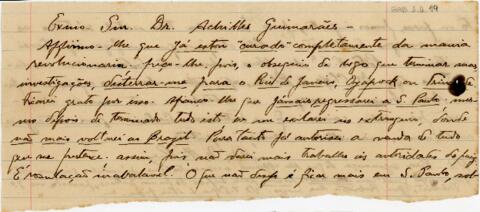 Exmo Snr. Dr. Achilles Guimarães -
Affirmo-lhe que já estou "curado" completamente da mania
revolucionaria. Peço-lhe, pois, o obsequio de logo que terminar suas
investigações, desterrar-me para o Rio de Janeiro, Oyapock ou
ficarei grato por isso. Afianço-lhe que jamais regressarei a S. Paulo, mes-
mo depois de terminado tudo isto. ou no extrangeiro, donde
não mais voltarei ao Brazil. Para tanto já autorisei a venda de tudo
que me pertence, assim, pois, não darei mais trabalho ás autoridades do paiz.
É resolução inabalavel. O que não desejo é ficar mais em S. Paulo, sob